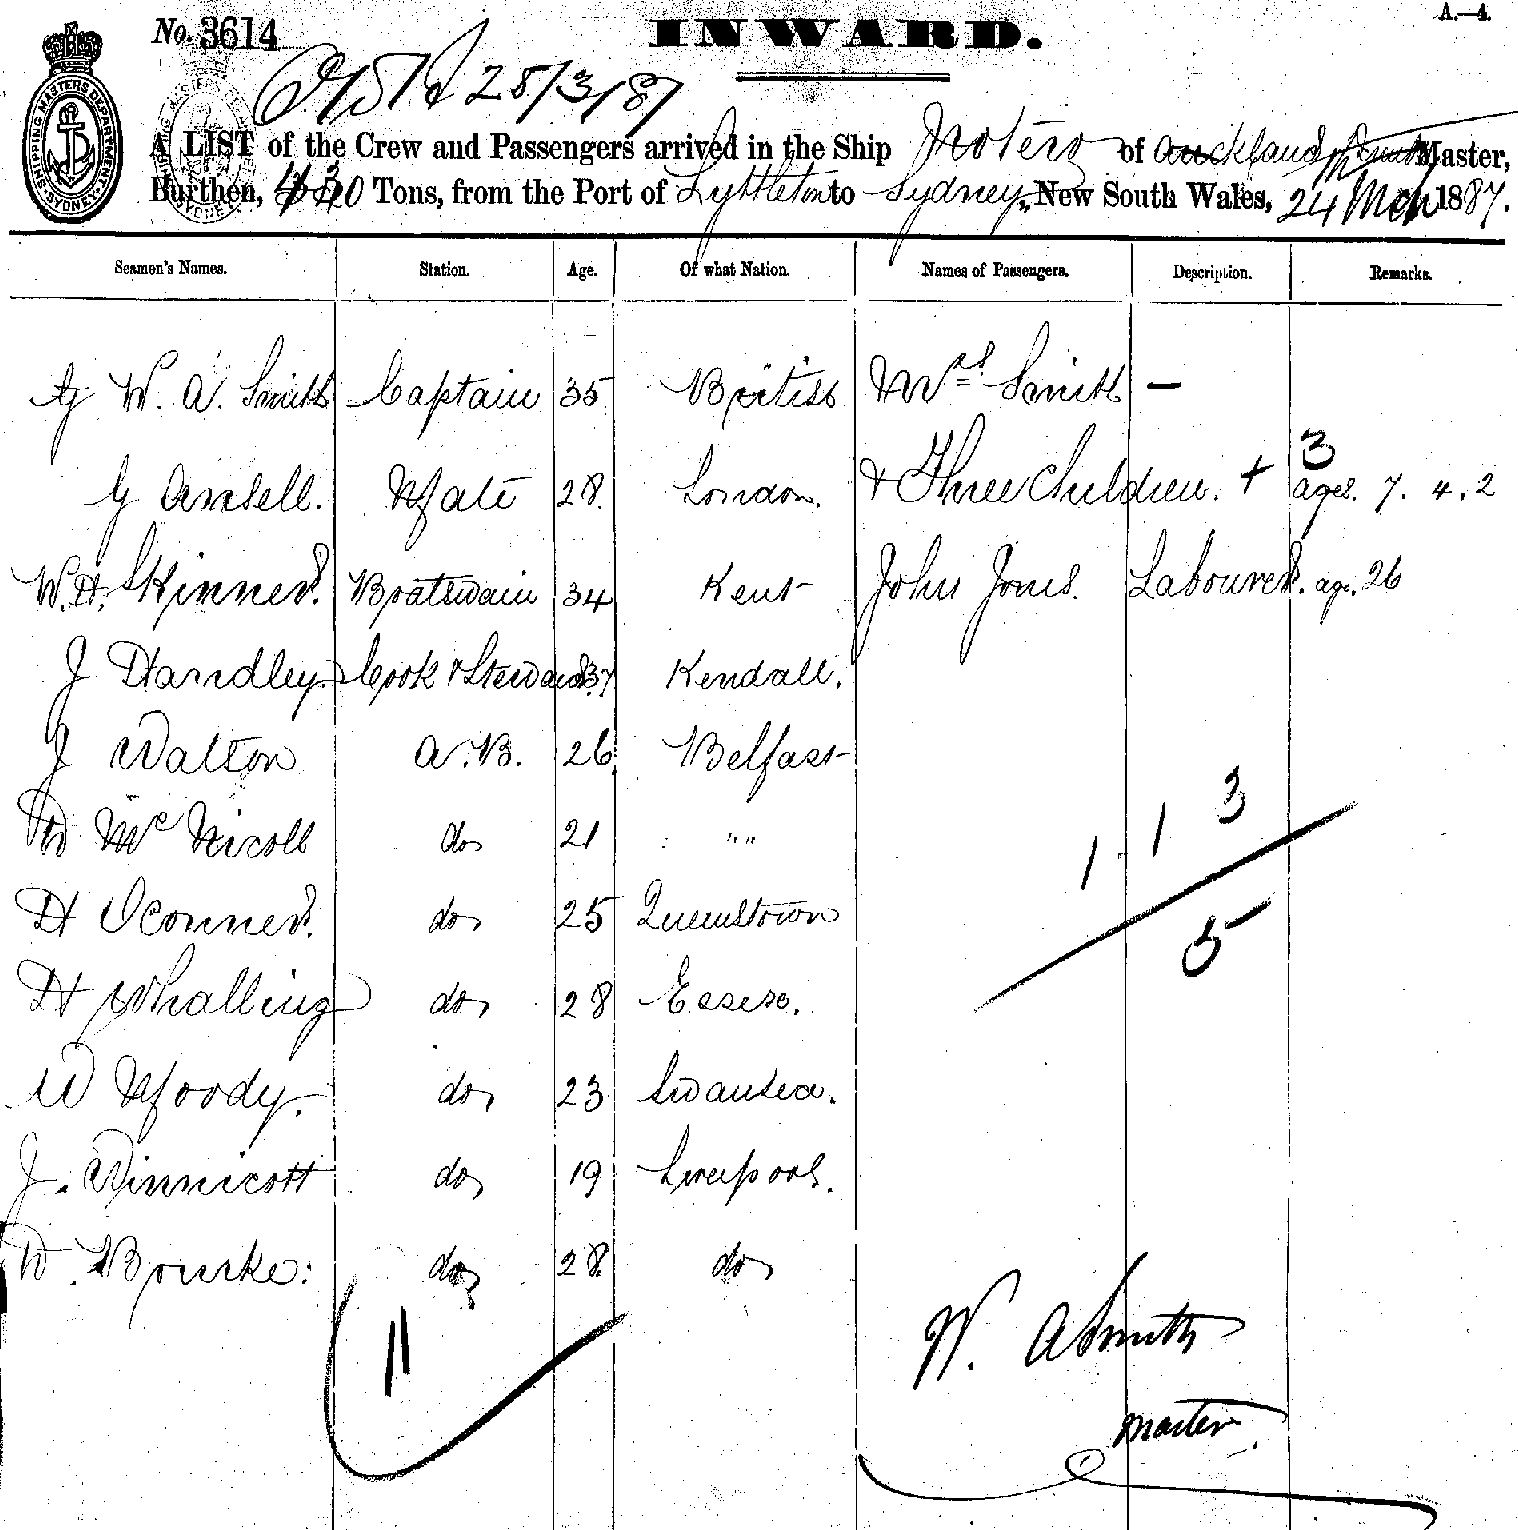 A.—4.
No. 3614
INWARD.
25/3/87
SHIPPING MASTERS DEPARTMENT SYDNEY
A LIST of the Crew and Passengers arrived in the Ship of Auckland, Smith Master,
Burthen, Tons, from the Port of Lyttleton to Sydney, New South Wales, 24 Mch 1887.
Seamen's Names. Station. Age. Of what Nation. Names of Passengers. Description. Remarks.
W. A. Smith Captain 35 British Mrs Smith —
G Ansell. Mate 28. London. + Three Children. + 3 ages. 7. 4. 2
W. H. Skinner. Boatswain 34 Kent John Jones. Labourer. age. 26
J Handley. Cook & Steward. 37 Kendall.
J Walton A.B. 26 Belfast
W McNicoll do 21 " "
H Oconner. do 25 Queenstown
H Whalling do 28 Essex.
W Moody. do 23 Swansea.
J. Winnicott do 19 Liverpool.
W. Bourke: do 28. do
1 1 3
5
11
W. A Smith
Master